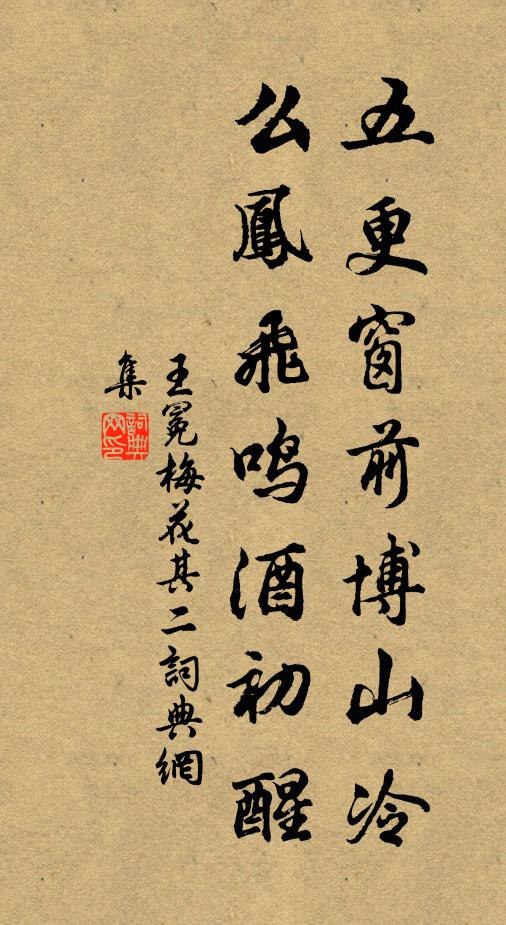 五更窗前博山冷
么鳳飛鳴酒初醒
王冕梅花其二詞典網
集
詞典網印